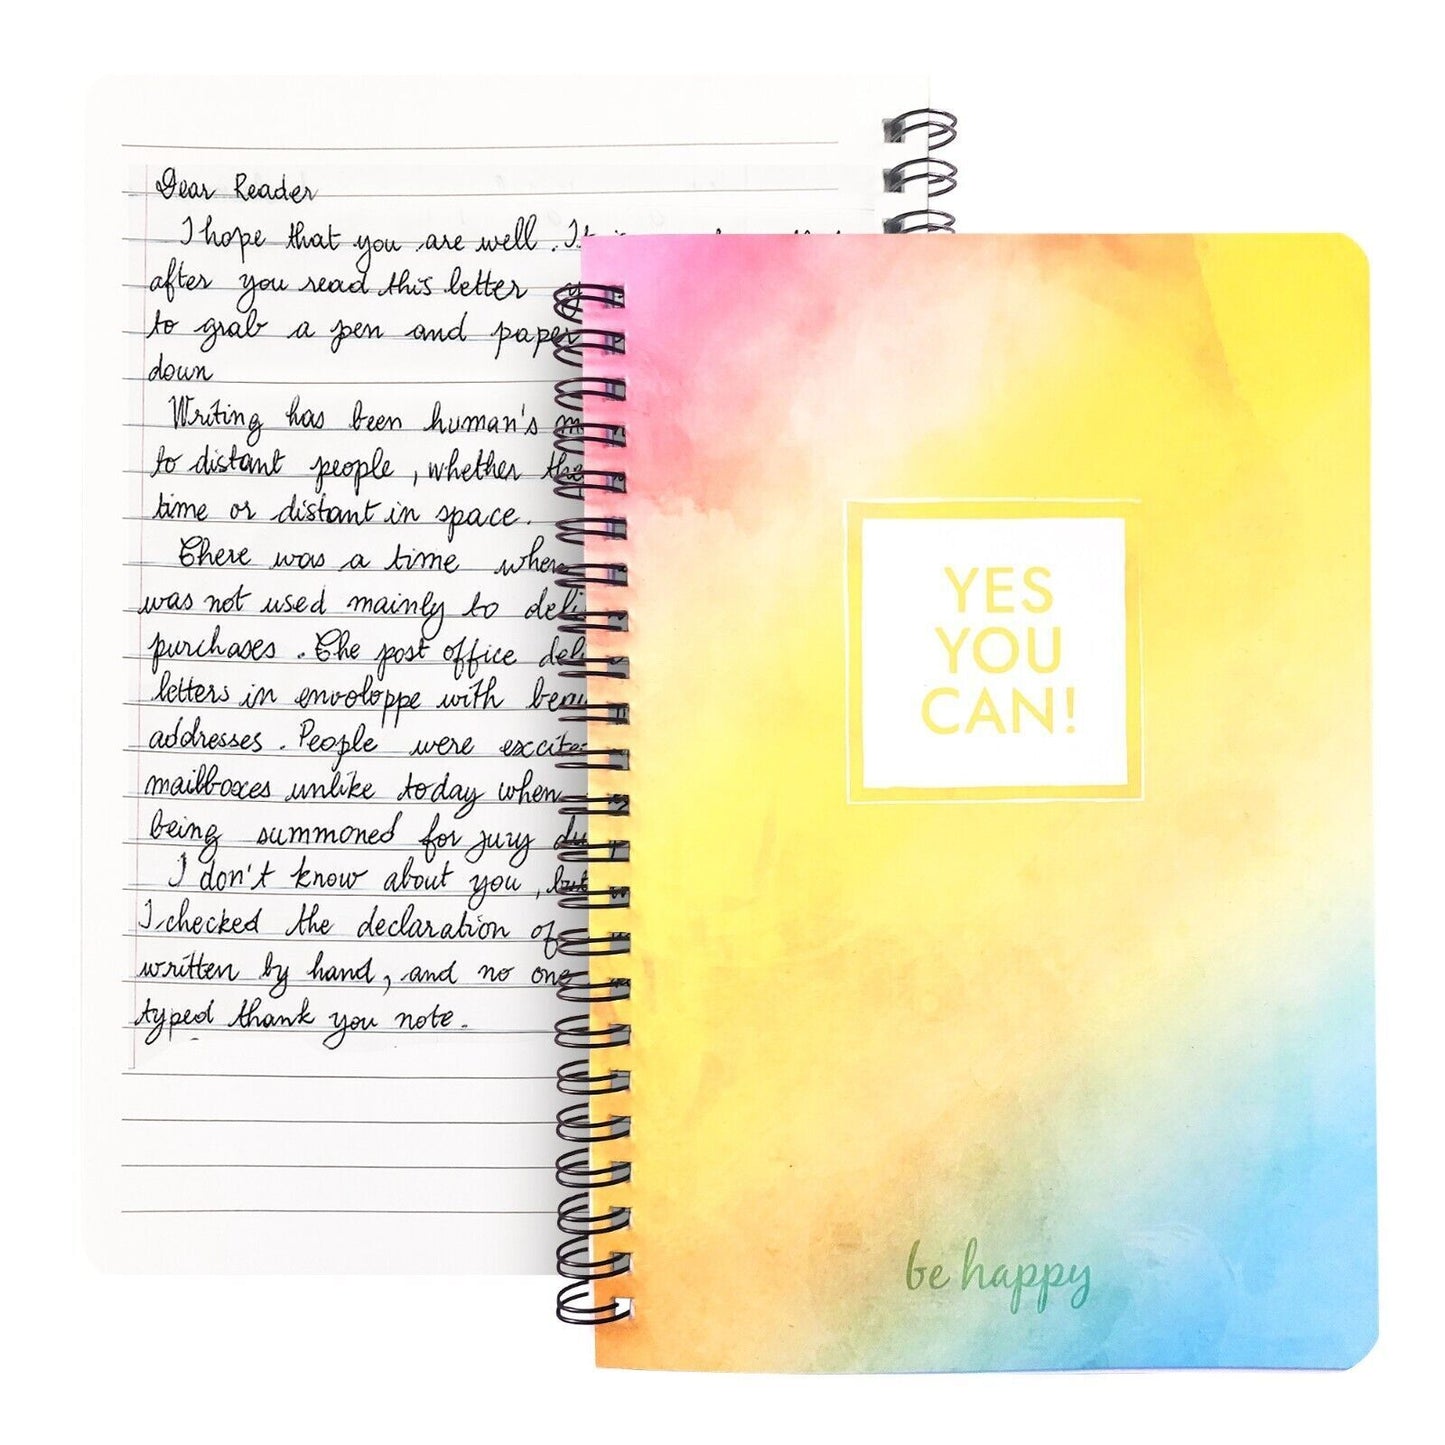 Dear Reader
I hope that you are well. It is
after you read this letter
to grab a pen and paper
down
Writing has been human's
to distant people, whether the
time or distant in space.
There was a time when
was not used mainly to
purchases. The post office
letters in envoloppe with
addresses. People were
mailboxes unlike today when
being summoned for jury
I don't know about you, but
I checked the declaration of
written by hand, and no one
typed thank you note.
YES
YOU
CAN!
be happy